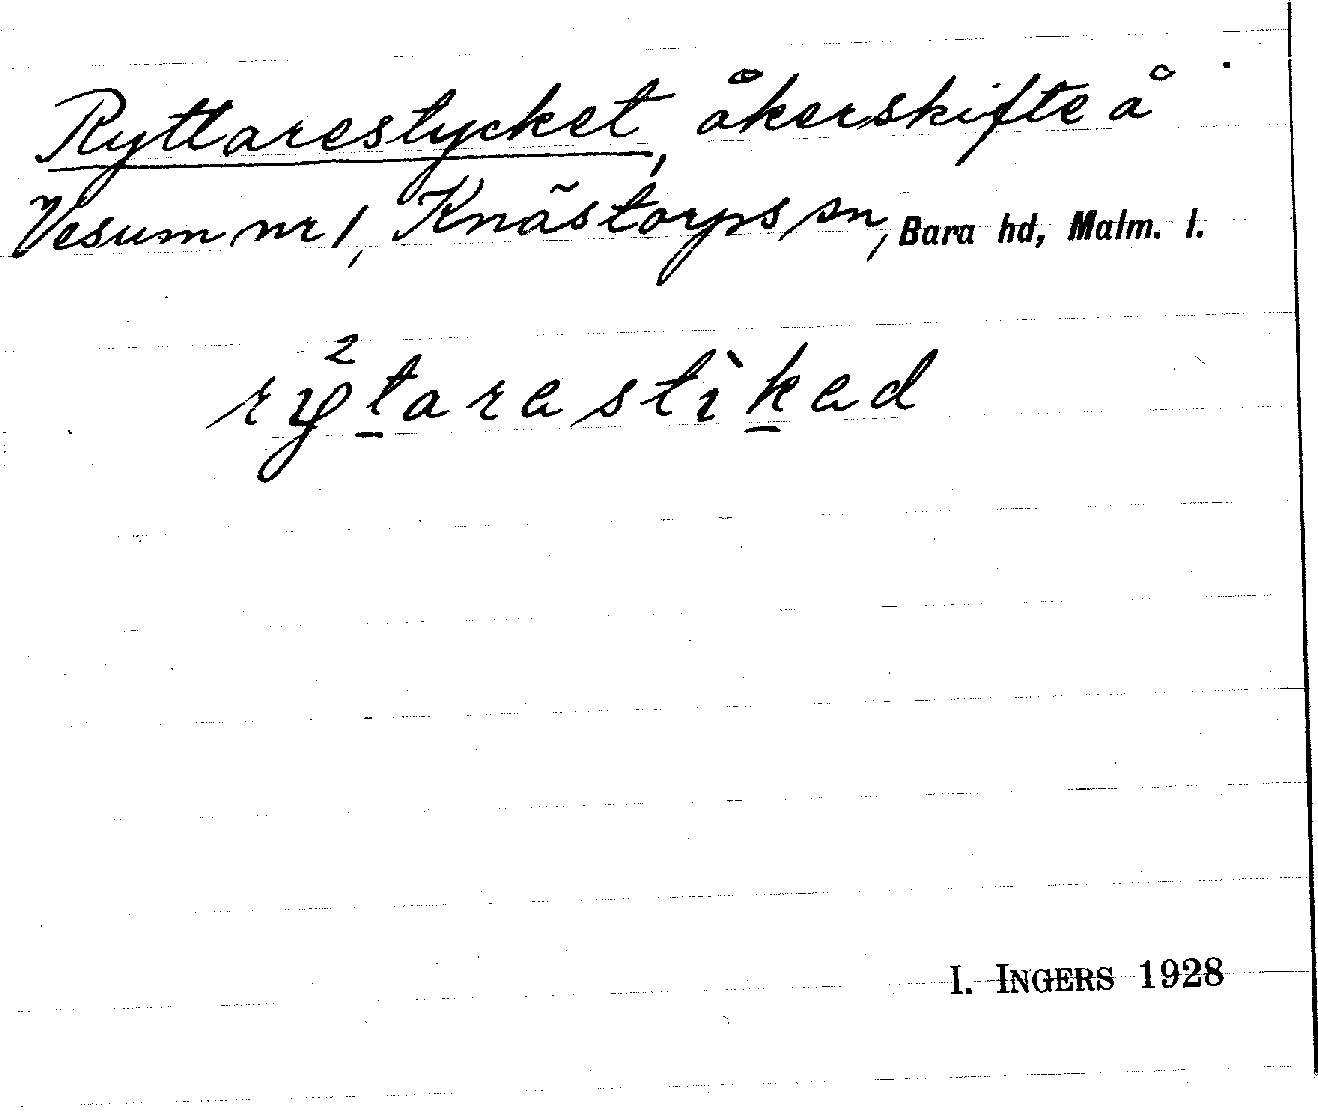 Ryttarestycket, åkerskifte å
Vesum nr 1, Knästorps sn, Bara hd, Malm. l.
rÿ²t̲arastìk̲ad
I. INGERS 1928